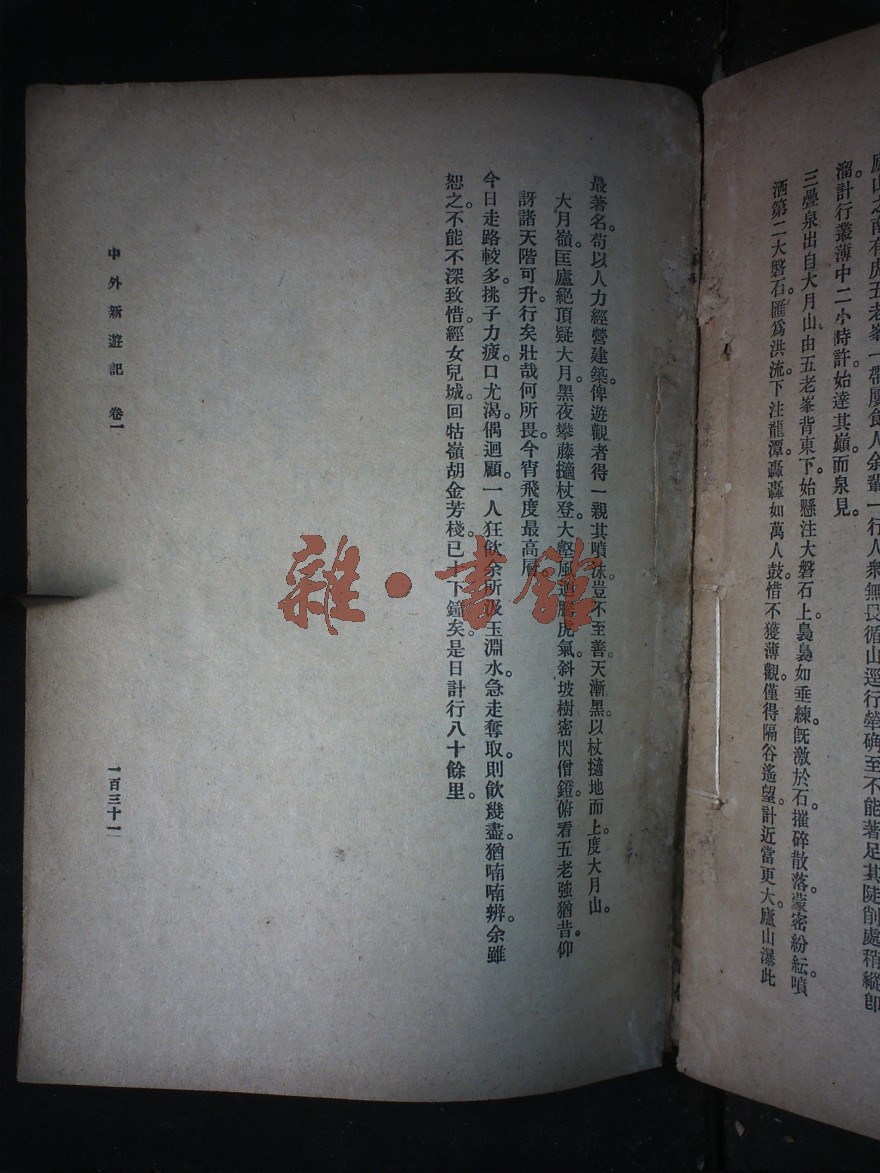 廬山之南有虎五老峯一帶屢食人余輩一行人衆無畏循山逕行犖确至不能著足其陡削處稍縱即
溜計行叢薄中二小時許始達其巔而泉見。
三疊泉出自大月山、由五老峯背東下。始懸注大磐石上裊裊如垂練。旣激於石摧碎散落。蒙密紛紜噴
洒第二大磐石。匯爲洪流。下注龍潭。轟轟如萬人鼓。惜不獲薄觀。僅得隔谷遙望。計近當更大。廬山瀑此
最著名。苟以人力經營建築。俾遊觀者得一親其噴沫。豈不至善。天漸黑。以杖擿地而上。度大月山。
大月嶺。匡廬絕頂疑大月。黑夜攀藤擿杖登。大壑風 虎氣。斜坡樹密閃僧鐙。俯看五老強猶昔。仰
訝諸天階可升。行矣壯哉何所畏。今宵飛度最高層。
今日走路較多。挑子力疲。口尤渴。偶迴顧。一人狂飲余所汲玉淵水。急走奪取。則飲幾盡。猶喃喃辨。余雖
恕之。不能不深致惜。經女兒城。回牯嶺胡金芳棧。已十下鐘矣。是日計行八十餘里。
中外新遊記 卷一
一百三十一
雜·書館